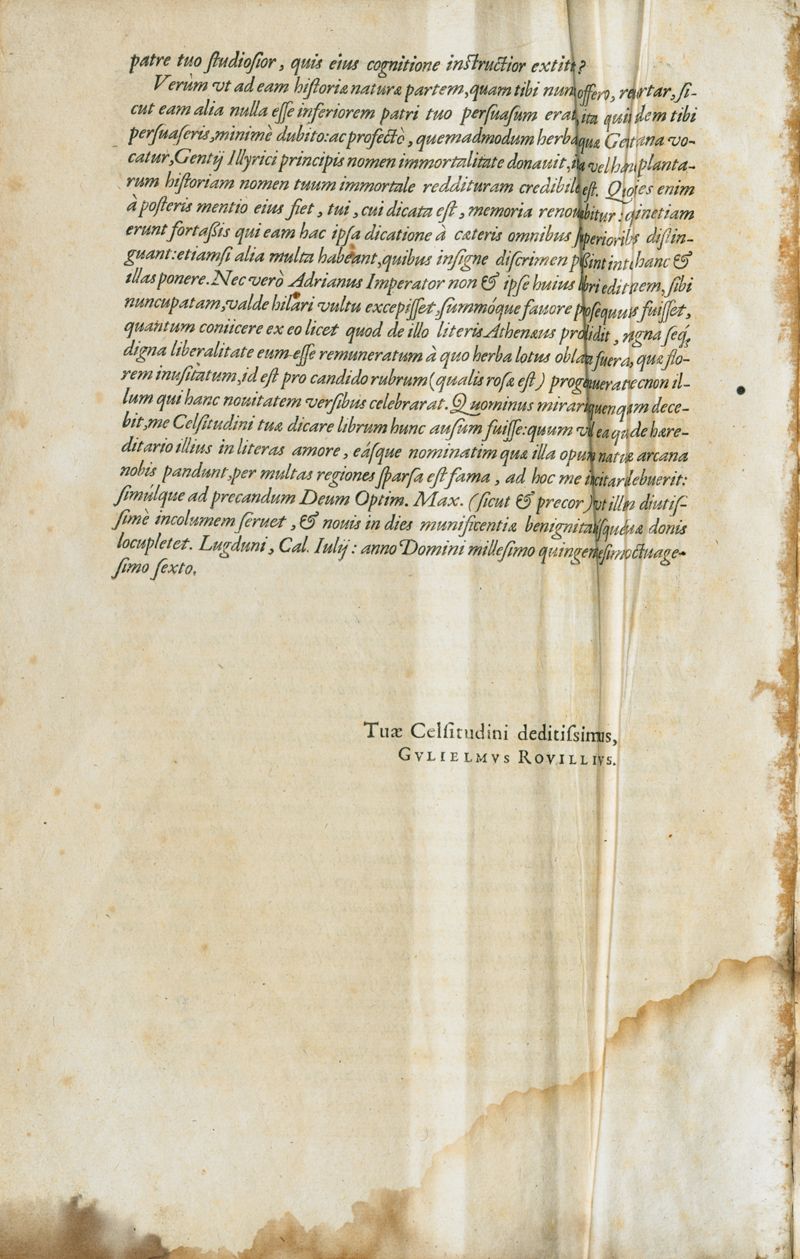 patre tuo ſtudioſior, quis eius cognitione inſtructior extitit?
Verùm vt ad eam hiſtoriæ naturæ partem, quam tibi nunc offero, reuertar, ſi-
cut eam alia nulla eſſe inferiorem patri tuo perſuaſum erat, ita quidem tibi
perſuaſeris, minimè dubito: ac profectò, quemadmodum herbæ quæ Gentiana vo-
catur, Gentij Illyrici principis nomen immortalitate donauit, ita vel hanc planta-
rum hiſtoriam nomen tuum immortale reddituram credibile eſt. Quoties enim
à poſteris mentio eius fiet, tui, cui dicata eſt, memoria renouabitur: quinetiam
erunt fortaſsis qui eam hac ipſa dicatione à cæteris omnibus ſuperioribus diſtin-
guant: etiamſi alia multa habeant, quibus inſigne diſcrimen poſsint inter hanc &
illas ponere. Nec verò Adrianus Imperator non & ipſe huius libri editionem, ſibi
nuncupatam, valde hilari vultu excepiſſet, ſummóque fauore proſequutus fuiſſet,
quantum coniicere ex eo licet quod de illo literis Athenæus prodidit, magna ſeq́;
digna liberalitate eum eſſe remuneratum à quo herba lotus oblata fuerat, quæ flo-
rem inuſitatum, id eſt pro candido rubrum (qualis roſæ eſt) progenuerat: necnon il-
lum qui hanc nouitatem verſibus celebrarat. Quominus mirari quenquam dece-
bit, me Celſitudini tuæ dicare librum hunc auſum fuiſſe: quum vel ea quæ de hære-
ditario illius in literas amore, eáſque nominatim quæ illa opum naturæ arcana
nobis pandunt, per multas regiones ſparſa eſt fama, ad hoc me incitare debuerit:
ſimúlque ad precandum Deum Optim. Max. (ſicut & precor) vt illam diutiſ-
ſimè incolumem ſeruet, & nouis in dies munificentiæ benignitatíſque ſuæ donis
locupletet. Lugduni, Cal. Iulij: anno Domini milleſimo quingenteſimo octuage-
ſimo ſexto.
Tuæ Celſitudini deditiſsimus,
GVLIELMVS ROVILLIVS.